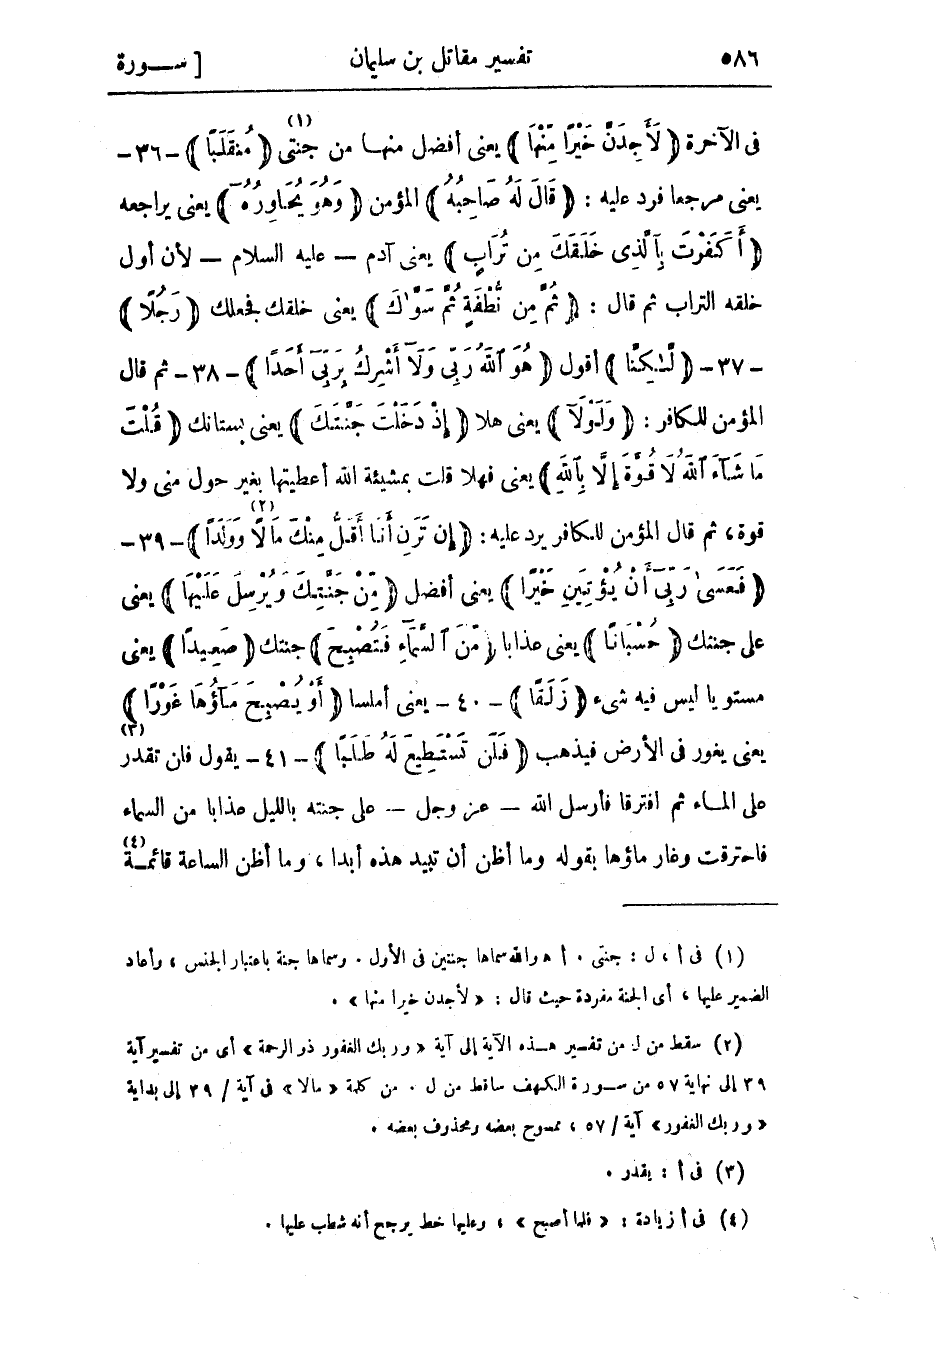 ٥٨٦ تفسير مقاتل بن سليمان [ سـورة
فى الآخرة ﴿ لَأَجِدَنَّ خَيْرًا مِّنْهَا ﴾ يعنى أفضل منها من جنتى (١) ﴿ مُنقَلَبًا ﴾ -٣٦-
يعنى مرجعا فرد عليه : ﴿ قَالَ لَهُ صَاحِبُهُ ﴾ المؤمن ﴿ وَهُوَ يُحَاوِرُهُ ﴾ يعنى يراجعه
﴿ أَكَفَرْتَ بِٱلَّذِى خَلَقَكَ مِن تُرَابٍ ﴾ يعنى آدم — عليه السلام — لأن أول
خلقه التراب ثم قال : ﴿ ثُمَّ مِن نُّطْفَةٍ ثُمَّ سَوَّىٰكَ ﴾ يعنى خلقك فجعلك ﴿ رَجُلًا ﴾
-٣٧- ﴿ لَّٰكِنَّا ﴾ أقول ﴿ هُوَ ٱللَّهُ رَبِّى وَلَآ أُشْرِكُ بِرَبِّىٓ أَحَدًا ﴾ -٣٨- ثم قال
المؤمن للكافر : ﴿ وَلَوْلَآ ﴾ يعنى هلا ﴿ إِذْ دَخَلْتَ جَنَّتَكَ ﴾ يعنى بستانك ﴿ قُلْتَ
مَا شَآءَ ٱللَّهُ لَا قُوَّةَ إِلَّا بِٱللَّهِ ﴾ يعنى فهلا قلت بمشيئة الله أعطيتها بغير حول منى ولا
قوة، ثم قال المؤمن للكافر يرد عليه: ﴿ إِن تَرَنِ أَنَا أَقَلَّ مِنكَ مَالًا (٢) وَوَلَدًا ﴾ -٣٩-
﴿ فَعَسَىٰ رَبِّىٓ أَنْ يُؤْتِيَنِ خَيْرًا ﴾ يعنى أفضل ﴿ مِّنْ جَنَّتِكَ وَيُرْسِلَ عَلَيْهَا ﴾ يعنى
على جنتك ﴿ حُسْبَانًا ﴾ يعنى عذابا ﴿ مِّنَ ٱلسَّمَآءِ فَتُصْبِحَ ﴾ جنتك ﴿ صَعِيدًا ﴾ يعنى
مستويا ليس فيه شىء ﴿ زَلَقًا ﴾ - ٤٠ - يعنى أملسا ﴿ أَوْ يُصْبِحَ مَآؤُهَا غَوْرًا ﴾
يعنى يغور فى الأرض فيذهب ﴿ فَلَن تَسْتَطِيعَ لَهُ طَلَبًا ﴾ -٤١- يقول فلن تقدر (٣)
على الماء ثم افترقا فأرسل الله — عز وجل — على جنته بالليل عذابا من السماء
فاحترقت وغار ماؤها بقوله وما أظن أن تبيد هذه أبدا ، وما أظن الساعة قائمة (٤)
(١) فى أ ، ل : جنتى . أ ه والله سماها جنتين فى الأول . وسماها جنة باعتبار الجنس ، وأعاد
الضمير عليها ، أى الجنة مفردة حيث قال : « لأجدن خيرا منها » .
(٢) سقط من ل من تفسير هـذه الآية إلى آية « وربك الغفور ذو الرحمة » أى من تفسير آية
٣٩ إلى نهاية ٥٧ من سورة الكهف ساقط من ل . من كلمة « مالا » فى آية / ٣٩ إلى بداية
« وربك الغفور » آية / ٥٧ ، ممسوح بعضه ومحذوف بعضه .
(٣) فى أ : يقدر .
(٤) فى أ زيادة : « فلما أصبح » ، وعليها خط يرجح أنه شطب عليها .